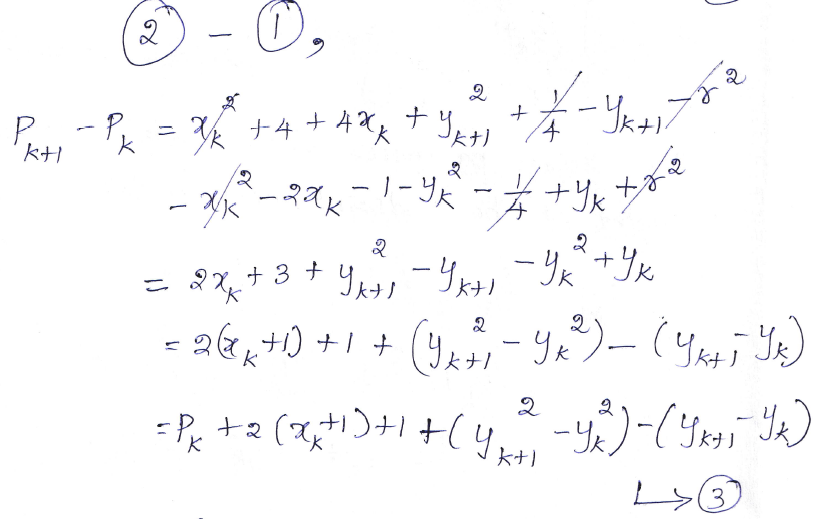 ② - ①,
P_{k+1} - P_k = x_k^2 + 4 + 4x_k + y_{k+1}^2 + 1/4 - y_{k+1} - r^2
- x_k^2 - 2x_k - 1 - y_k^2 - 1/4 + y_k + r^2
= 2x_k + 3 + y_{k+1}^2 - y_{k+1} - y_k^2 + y_k
= 2(x_k+1) + 1 + (y_{k+1}^2 - y_k^2) - (y_{k+1} - y_k)
= P_k + 2(x_k+1) + 1 + (y_{k+1}^2 - y_k^2) - (y_{k+1} - y_k)
↳ ③